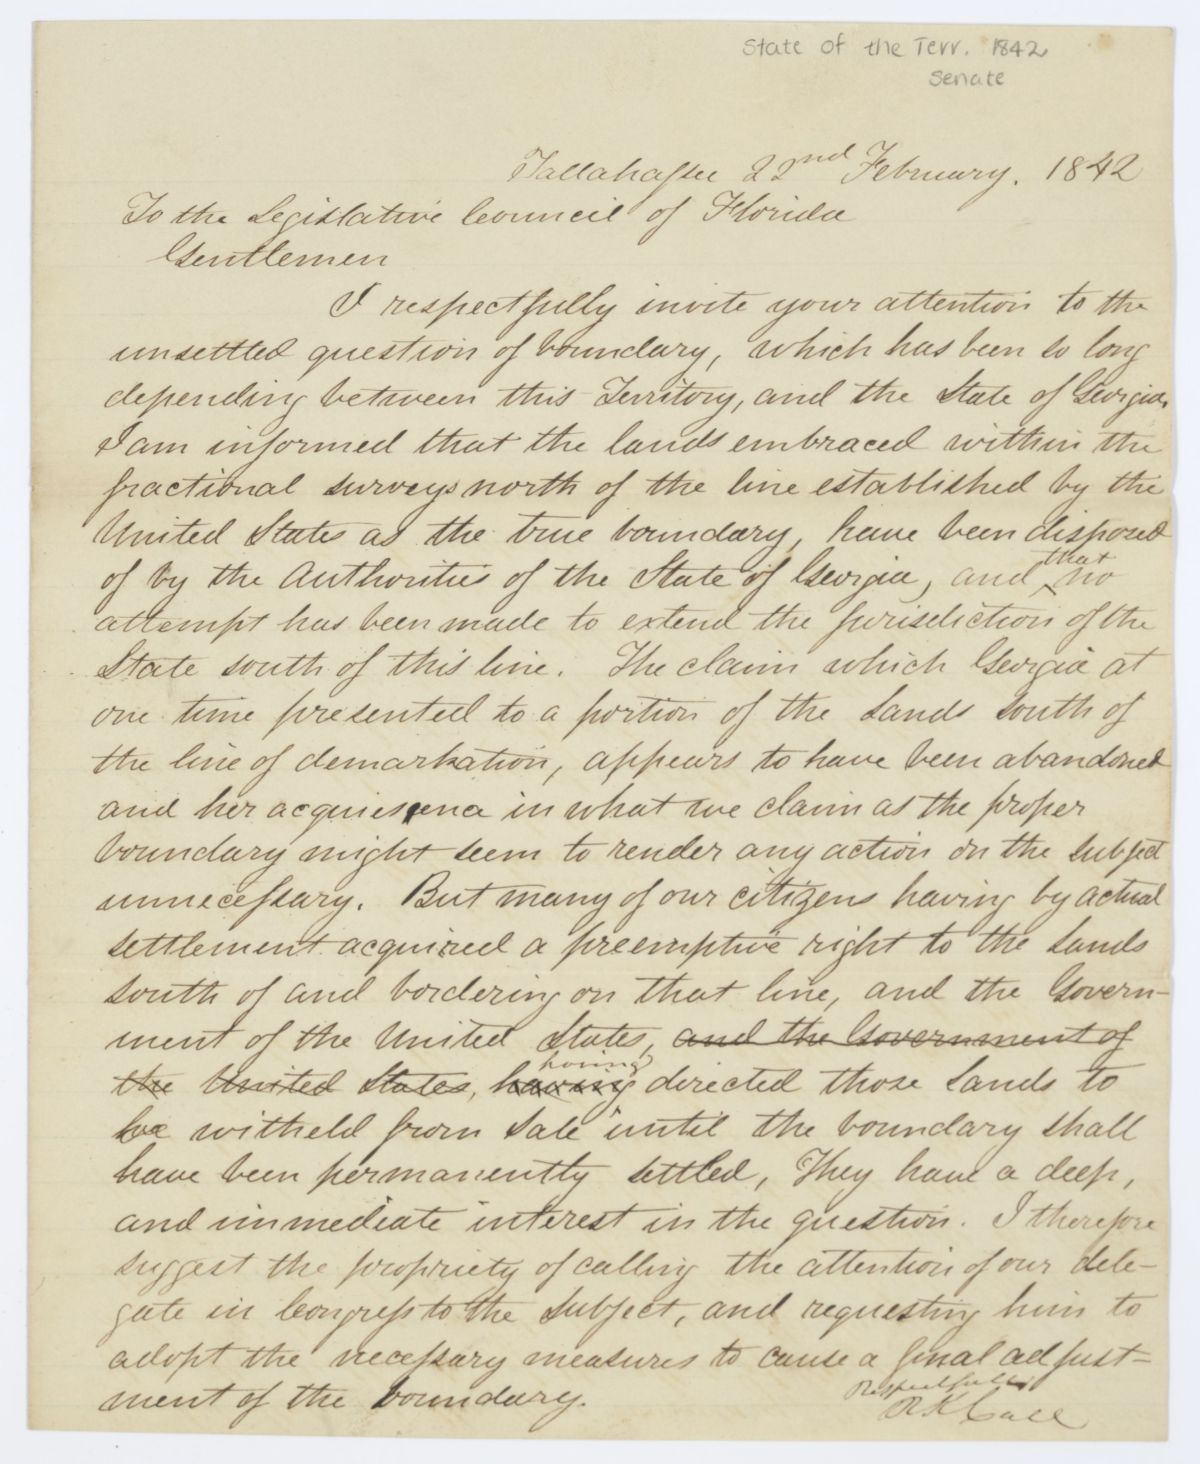 State of the Terr. 1842
Senate
Tallahassee 22nd February. 1842
To the Legislative Council of Florida
Gentlemen
I respectfully invite your attention to the
unsettled question of boundary, which has been so long
depending between this Territory, and the State of Georgia,
I am informed that the lands embraced within the
fractional surveys north of the line established by the
United States as the true boundary, have been disposed
of by the Authorities of the State of Georgia, and that no
attempt has been made to extend the jurisdiction of the
State south of this line. The claim which Georgia at
one time presented to a portion of the Lands South of
the line of demarkation, appears to have been abandoned
and her acquiescence in what we claim as the proper
boundary might seem to render any action on the subject
unnecessary. But many of our citizens having by actual
settlement acquired a preemptive right to the Lands
south of and bordering on that line, and the Govern-
ment of the United States, and the Government of
the United States, having having directed those Lands to
be witheld from Sale until the boundary shall
have been permanently settled, They have a deep,
and immediate interest in the question. I therefore
suggest the propriety of calling the attention of our dele-
gate in Congress to the Subject, and requesting him to
adopt the necessary measures to cause a final adjust-
ment of the boundary.
Respectfully
R K Call